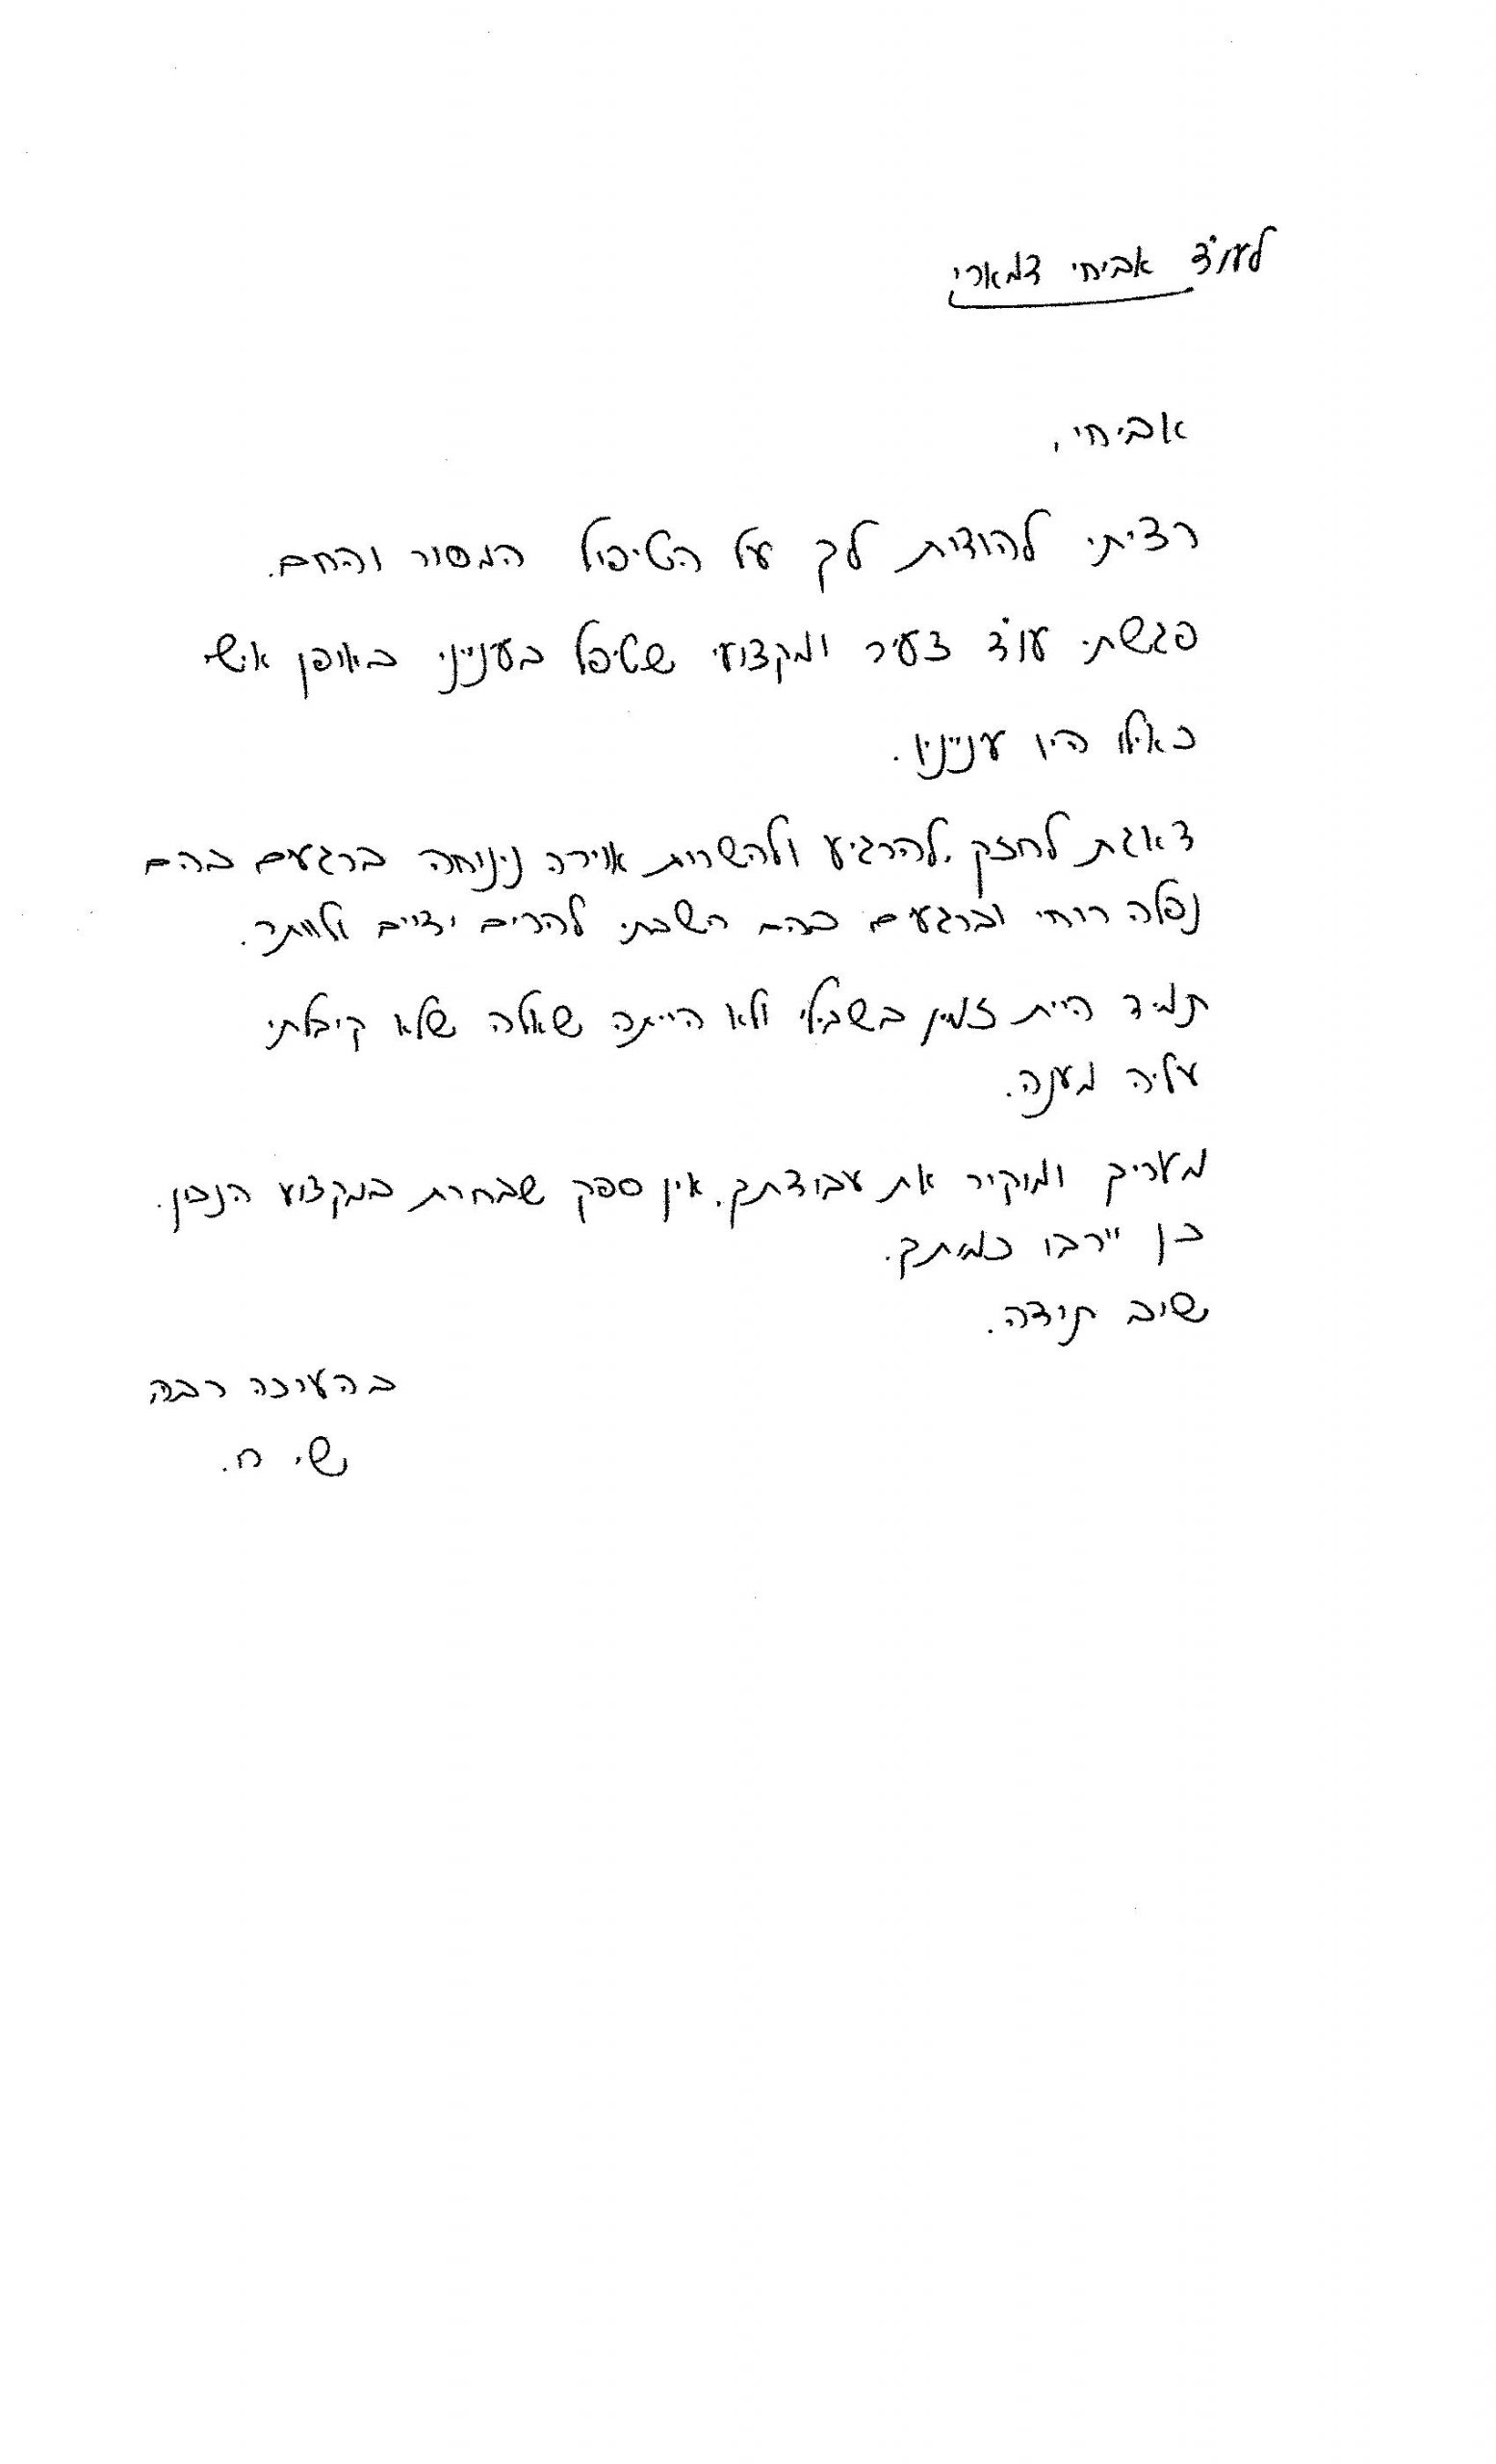 לעו"ד אביחי דמארי
אביחי,
רציתי להודות לך על הטיפול המסור והחם.
פגשתי עו"ד צעיר ומקצועי שטיפל בענייני באופן אישי
כאילו היו ענייניו.
דאגת לחזק, להרגיע ולהשרות אוירה נינוחה ברגעים בהם
נפלה רוחי וברגעים בהם חשבתי להרים ידיים ולוותר.
תמיד היית זמין בשבילי ולא הייתה שאלה שלא קיבלתי
עליה מענה.
מעריך ומוקיר את עבודתך. אין ספק שבחרת במקצוע הנכון.
כן יירבו כמותך.
שוב תודה.
בהערכה רבה
שי ח.